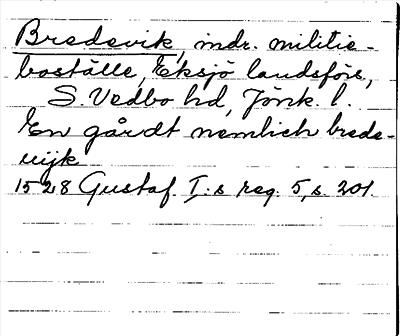 Bredevik, indr. militie-
boställe, Eksjö landsförs.,
S. Vedbo hd, Jönk. l.
En gårdt nemlich brede-
uijk
1528 Gustaf. I:s reg. 5, s. 201.